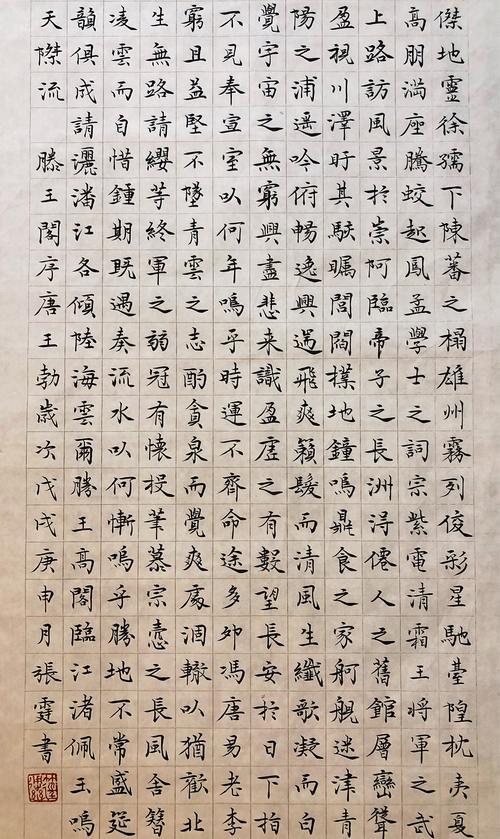 傑地靈徐孺下陳蕃之榻雄州霧列俊彩星馳臺隍枕夷夏
高朋滿座騰蛟起鳳孟學士之詞宗紫電清霜王將軍之武
上路訪風景於崇阿臨帝子之長洲得僊人之舊館層巒聳
盈視川澤盱其駭矚閭閻撲地鐘鳴鼎食之家舸艦迷津青
陽之浦遥吟俯暢逸興遄飛爽籟髮而清風生纖歌凝而白
覺宇宙之無窮興盡悲来識盈虛之有數望長安於日下指
不見奉宣室以何年嗚乎時運不齊命途多舛馮唐易老李
窮且益堅不墜青雲之志酌貪泉而覺爽處涸轍以猶歡北
生無路請纓等終軍之弱冠有懷投筆慕宗愨之長風舍簪
凌雲而自惜鍾期既遇奏流水以何慚嗚乎勝地不常盛筵
韻俱成請灑潘江各傾陸海雲爾勝王高閣臨江渚佩玉鳴
天傑流 滕王閣序唐王勃歲次戊戌庚申月張霆書